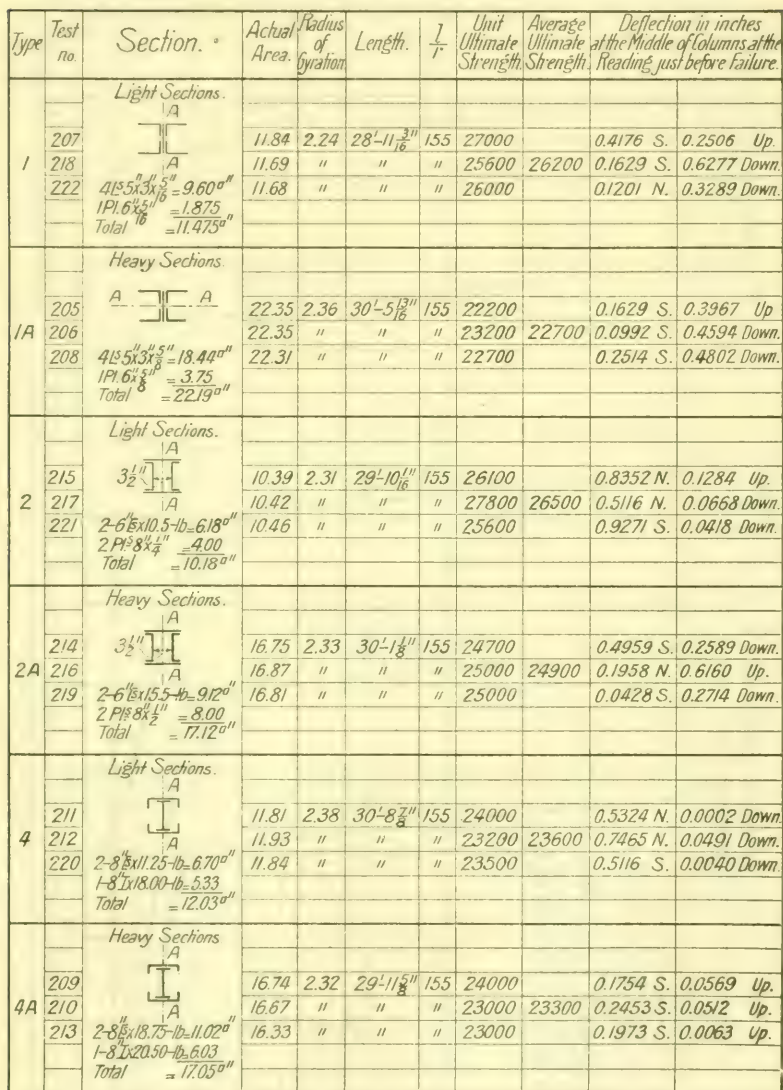 Type Test no. Section. Actual Area. Radius of Gyration. Length. l/r Unit Ultimate Strength. Average Ultimate Strength. Deflection in inches at the Middle of Columns at the Reading just before Failure.
Light Sections.
A
207 11.84 2.24 28'-11 3/16" 155 27000 0.4176 S. 0.2506 Up.
1 218 A 11.69 " " " 25600 26200 0.1629 S. 0.6277 Down.
222 4Ls 5"x3"x5/16"=9.60□" 11.68 " " " 26000 0.1201 N. 0.3289 Down.
1Pl.6"x5/16" =1.875
Total =11.475□"
Heavy Sections.
A A
205 22.35 2.36 30'-5 13/16" 155 22200 0.1629 S. 0.3967 Up
1A 206 22.35 " " " 23200 22700 0.0992 S. 0.4594 Down.
208 4Ls 5"x3"x5/8"=18.44□" 22.31 " " " 22700 0.2514 S. 0.4802 Down.
1Pl.6"x5/8" = 3.75
Total =22.19□"
Light Sections.
A
215 3 1/2" 10.39 2.31 29'-10 1/16" 155 26100 0.8352 N. 0.1284 Up.
2 217 A 10.42 " " " 27800 26500 0.5116 N. 0.0668 Down.
221 2-6"[s x10.5-lb=6.18□" 10.46 " " " 25600 0.9271 S. 0.0418 Down.
2 Pls 8"x1/4" =4.00
Total =10.18□"
Heavy Sections.
A
214 3 1/2" 16.75 2.33 30'-1 1/8" 155 24700 0.4959 S. 0.2589 Down.
2A 216 A 16.87 " " " 25000 24900 0.1958 N. 0.6160 Up.
219 2-6"[s x15.5-lb=9.12□" 16.81 " " " 25000 0.0428 S. 0.2714 Down.
2 Pls 8"x1/2" =8.00
Total =17.12□"
Light Sections.
A
211 11.81 2.38 30'-8 7/8" 155 24000 0.5324 N. 0.0002 Down.
4 212 A 11.93 " " " 23200 23600 0.7465 N. 0.0491 Down.
220 2-8"[s x11.25-lb=6.70□" 11.84 " " " 23500 0.5116 S. 0.0040 Down.
1-8"I x18.00-lb=5.33
Total =12.03□"
Heavy Sections
A
209 16.74 2.32 29'-11 5/8" 155 24000 0.1754 S. 0.0569 Up.
4A 210 A 16.67 " " " 23000 23300 0.2453 S. 0.0512 Up.
213 2-8"[s x18.75-lb=11.02□" 16.33 " " " 23000 0.1973 S. 0.0063 Up.
1-8"I x20.50-lb=6.03
Total =17.05□"